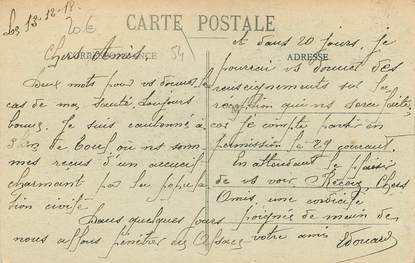 Les 13-12-18-
20 €
CARTE POSTALE
CORRESPONDANCE
54
ADRESSE
Chers Amis,
Deux mots pour vs donner le
cas de ma santé, toujours
bonne. Je suis cantonné à
3 km de Toul, où ns som-
mes recus d'un accueil
charmant par la popula
tion civile
Dans quelques jours
nous allons pénétrer en Alsace
et dans 20 jours, je
pourrai vs donner des
renseignements sur la
réception qui ns sera faite,
car je compte partir en
permission le 29 courant.
En attendant le plaisir
de vs voir Recevez, Chers
Amis, une cordiale
poignée de main de
votre ami Edouard